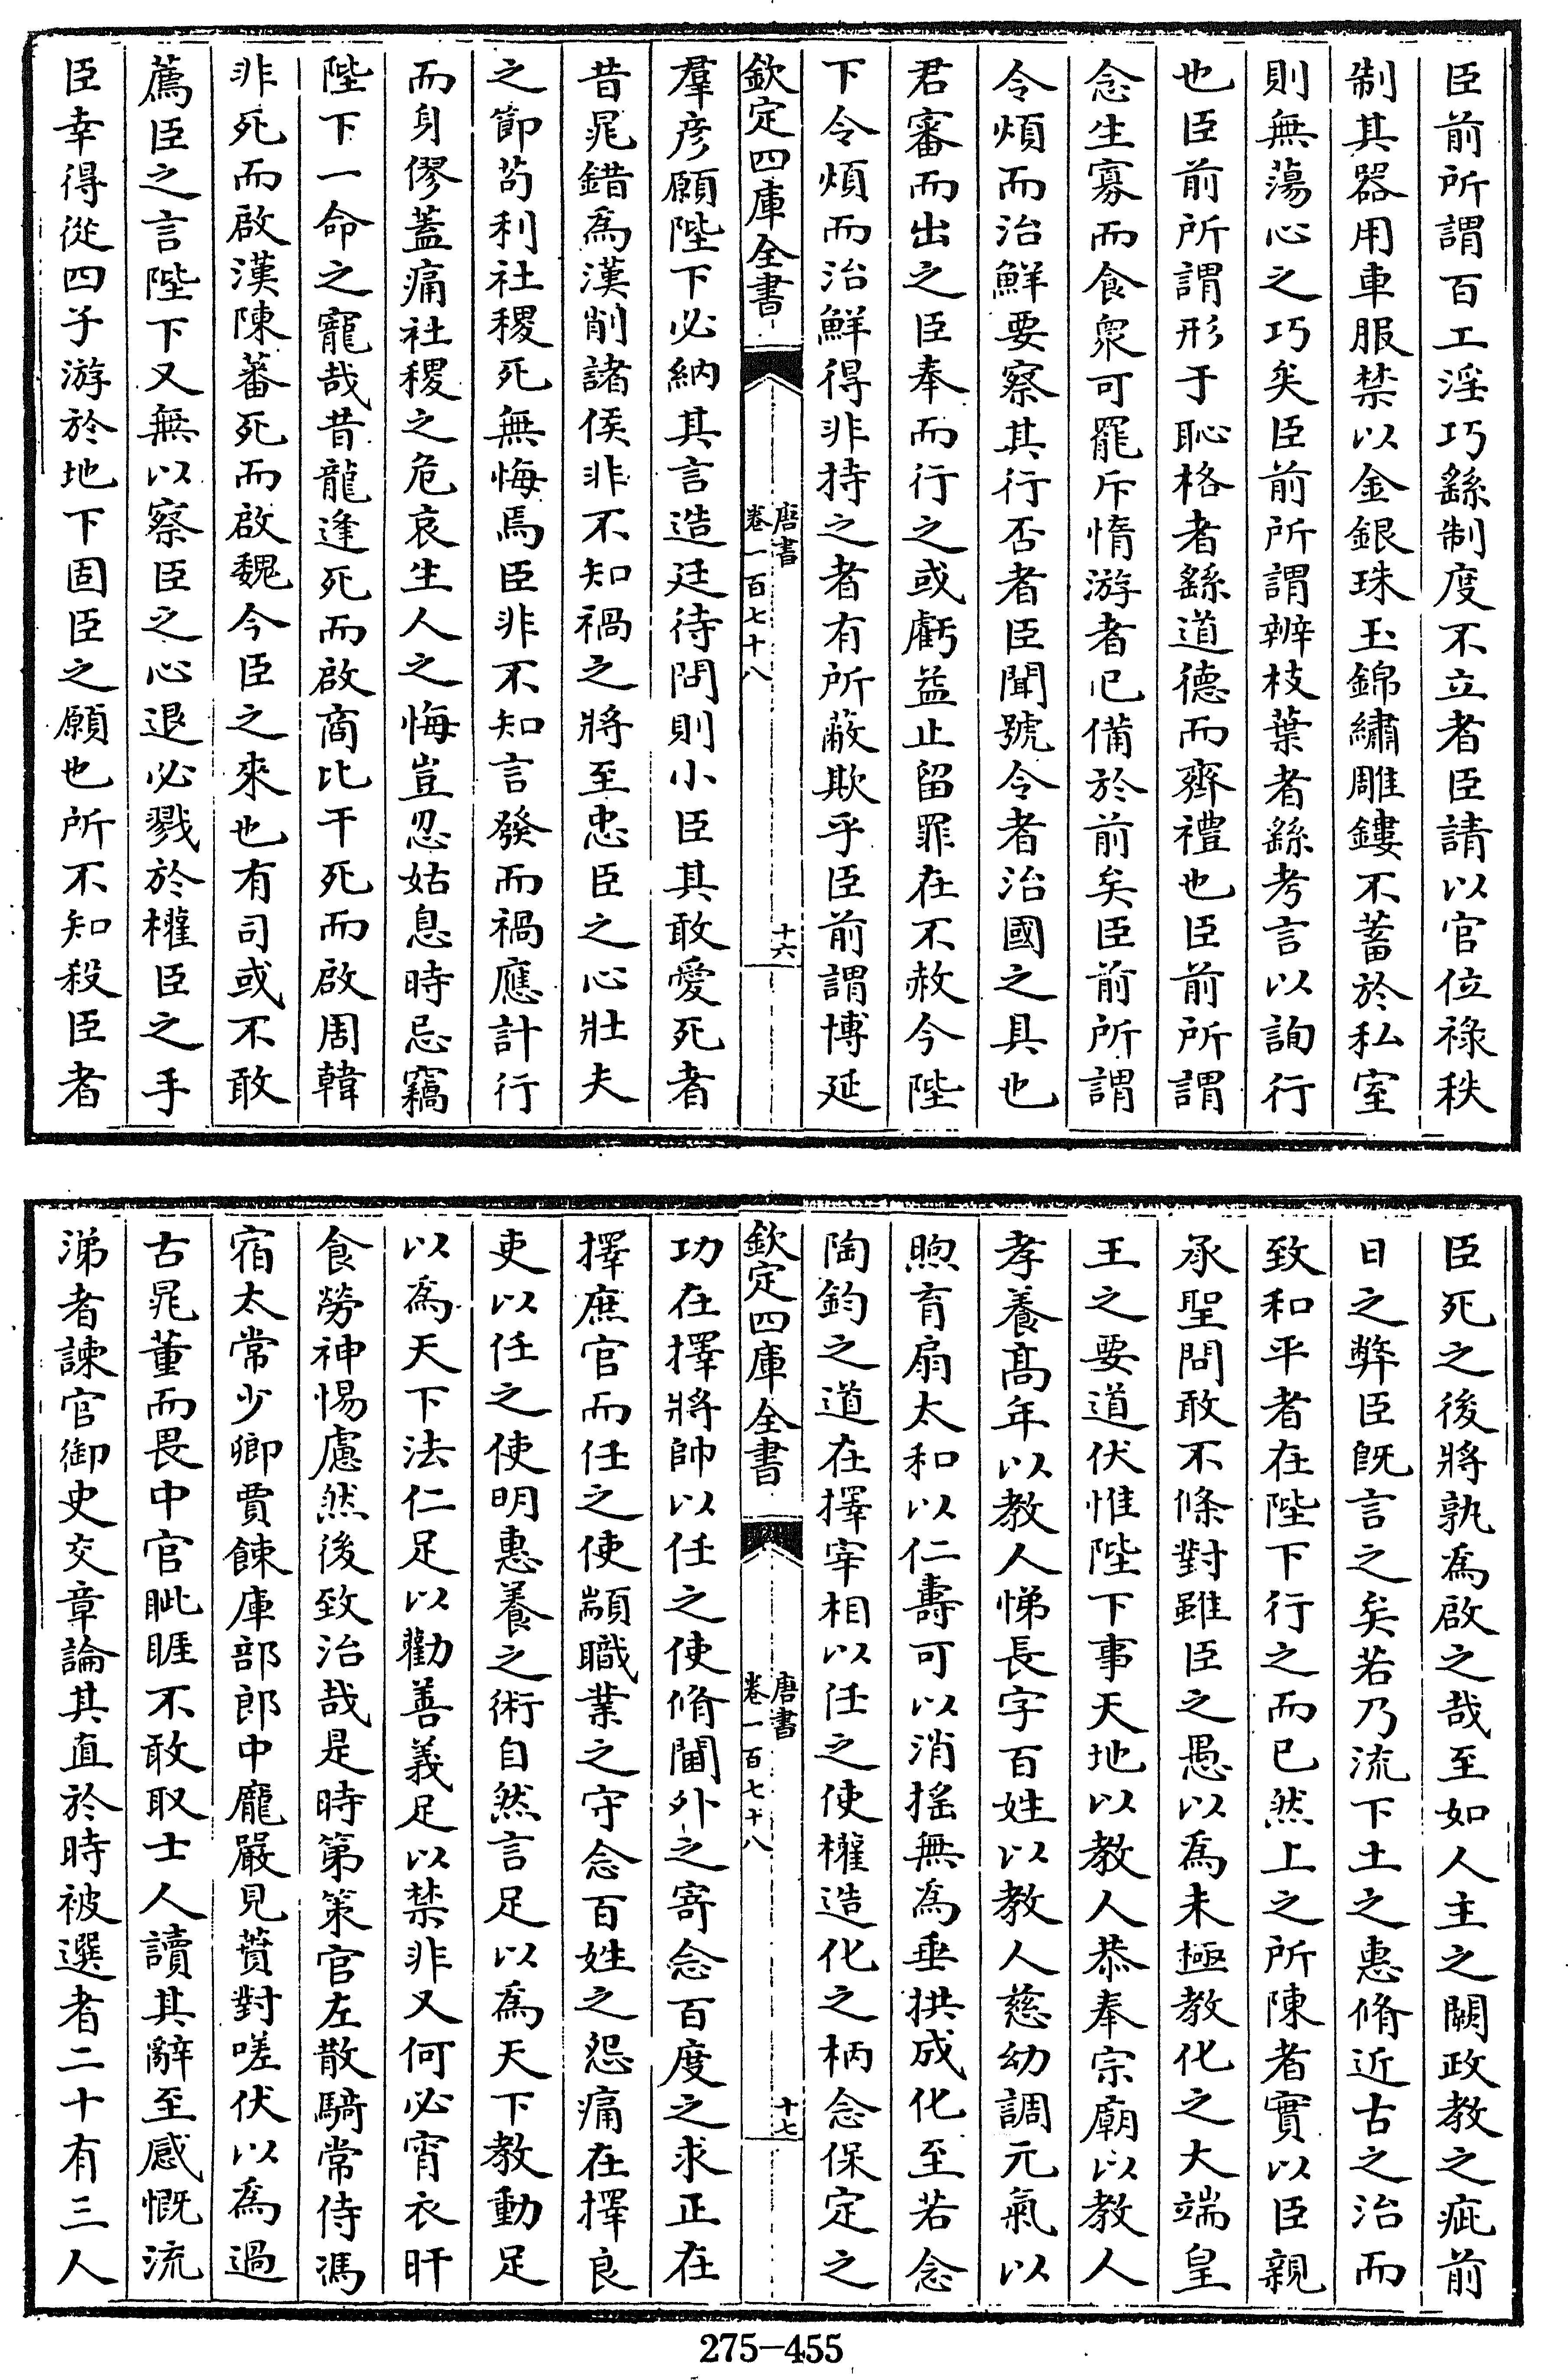 臣前所謂百工淫巧繇制度不立者臣請以官位祿秩
制其器用車服禁以金銀珠玉錦繡雕鏤不蓄於私室
則無蕩心之巧矣臣前所謂辨枝葉者繇考言以詢行
也臣前所謂形于恥格者繇道德而齊禮也臣前所謂
念生寡而食衆可罷斥惰游者已備於前矣臣前所謂
令煩而治鮮要察其行否者臣聞號令者治國之具也
君審而出之臣奉而行之或虧益止留罪在不赦今陛
下令煩而治鮮得非持之者有所蔽欺乎臣前謂博延
欽定四庫全書
唐書
卷一百七十八
十六
羣彦願陛下必納其言造廷待問則小臣其敢愛死者
昔晁錯為漢削諸侯非不知禍之將至忠臣之心壯夫
之節苟利社稷死無悔焉臣非不知言發而禍應計行
而身僇蓋痛社稷之危哀生人之悔豈忍姑息時忌竊
陛下一命之寵哉昔龍逢死而啟商比干死而啟周韓
非死而啟漢陳蕃死而啟魏今臣之來也有司或不敢
薦臣之言陛下又無以察臣之心退必戮於權臣之手
臣幸得從四子游於地下固臣之願也所不知殺臣者
臣死之後將孰為啟之哉至如人主之闕政教之疵前
日之弊臣旣言之矣若乃流下土之惠脩近古之治而
致和平者在陛下行之而已然上之所陳者實以臣親
承聖問敢不條對雖臣之愚以為未極教化之大端皇
王之要道伏惟陛下事天地以教人恭奉宗廟以教人
孝養髙年以教人悌長字百姓以教人慈幼調元氣以
煦育扇太和以仁壽可以消搖無為垂拱成化至若念
陶鈞之道在擇宰相以任之使權造化之柄念保定之
欽定四庫全書
唐書
卷一百七十八
十七
功在擇將帥以任之使脩閫外之寄念百度之求正在
擇庶官而任之使顓職業之守念百姓之怨痛在擇良
吏以任之使明惠養之術自然言足以為天下教動足
以為天下法仁足以勸善義足以禁非又何必宵衣旰
食勞神惕慮然後致治哉是時第策官左散騎常侍馮
宿太常少卿賈餗庫部郎中龐嚴見蕡對嗟伏以為過
古晁董而畏中官眦睚不敢取士人讀其辭至感慨流
涕者諫官御史交章論其直於時被選者二十有三人
275-455